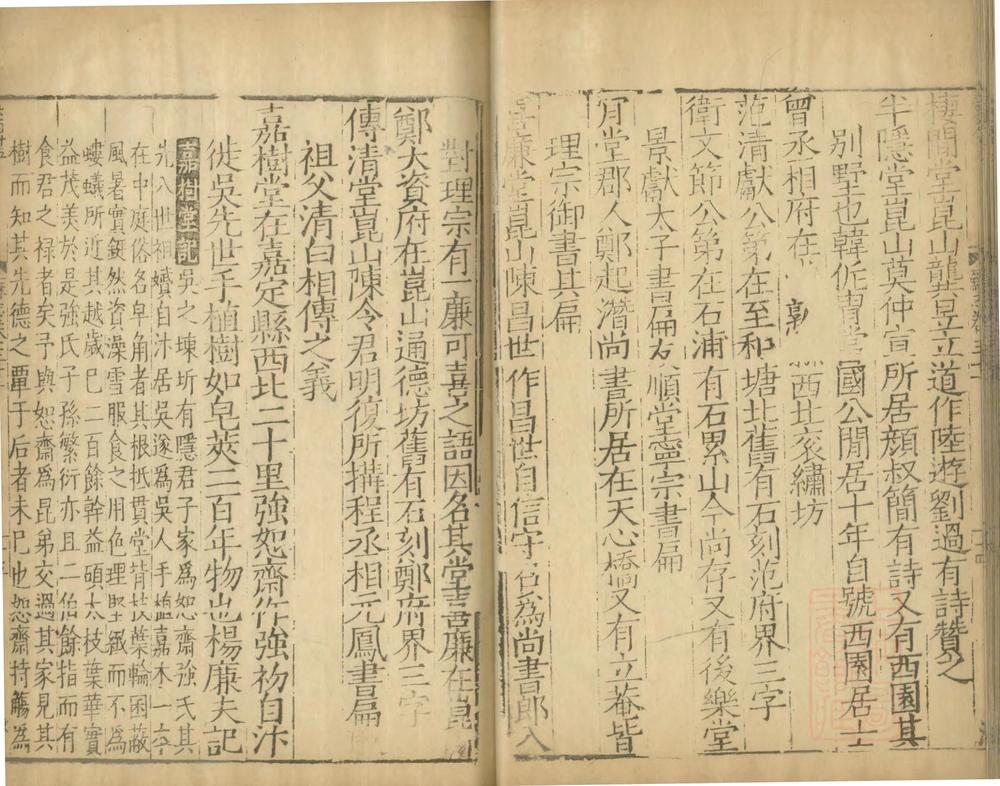 棲閒堂崑山龔昱立道作陸遊劉過有詩贊之
半隱堂崑山莫仲宣所居顏叔簡有詩又有西園其
別墅也韓侂胄當國公閒居十年自號西園居士
曾丞相府在西北袞繡坊
范清獻公第在至和塘北舊有石刻范府界三字
衛文節公第在石浦有石累山今尚存又有後樂堂
景獻太子書扁友順堂寧宗書扁
堂郡人鄭起潛尚書所居在天心橋又有立菴皆
理宗御書其扁
喜廉堂崑山陳昌世作昌世自信守召為尚書郎入
對理宗有一廉可喜之語因名其堂喜廉在崑
鄭大資府在崑山通德坊舊有石刻鄭府界三字
傳清堂崑山陳令君明復所搆程丞相元鳳書扁
祖父清白相傳之義
嘉樹堂在嘉定縣西北二十里強恕齋作強礿自汴
徙吳先世手植樹如皂莢二百年物也楊廉夫記
嘉樹堂記吳之埭圻有隱君子家為恕齋強氏其
先八世祖嬪自汴居吳遂為吳人手植嘉木一章
在中庭俗名皁角者其根抵貫堂背扶葉輪囷蔽
風暑實鋏然資澡雪服食之用色理堅緻而不為
螻蟻所近其越歲巳二百餘幹益碩大枝葉華實
益茂美於是強氏子孫繁衍亦且二伯餘指而有
食君之祿者矣予與恕齋為昆弟交過其家見其
樹而知其先德之覃于后者未巳也恕齋特觴為